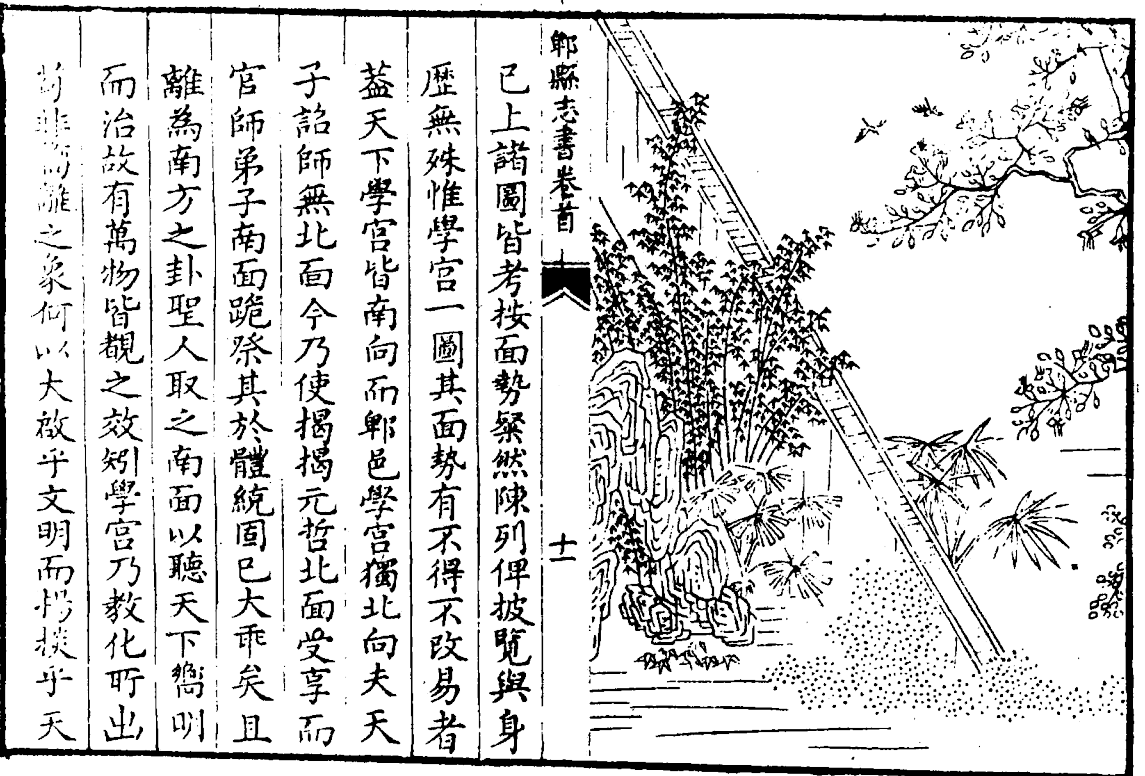 郫縣志書卷首
十一
已上諸圖皆考按面勢粲然陳列俾披覽與身
歷無殊惟學宮一圖其面勢有不得不改易者
葢天下學宮皆南向而郫邑學宮獨北向夫天
子詔師無北面今乃使揭揭元哲北面受享而
官師弟子南面跪祭其於體統固已大乖矣且
離為南方之卦聖人取之南面以聽天下嚮明
而治故有萬物皆覩之效矧學宮乃教化所出
苟非離之象何以大啟乎文明而乎天